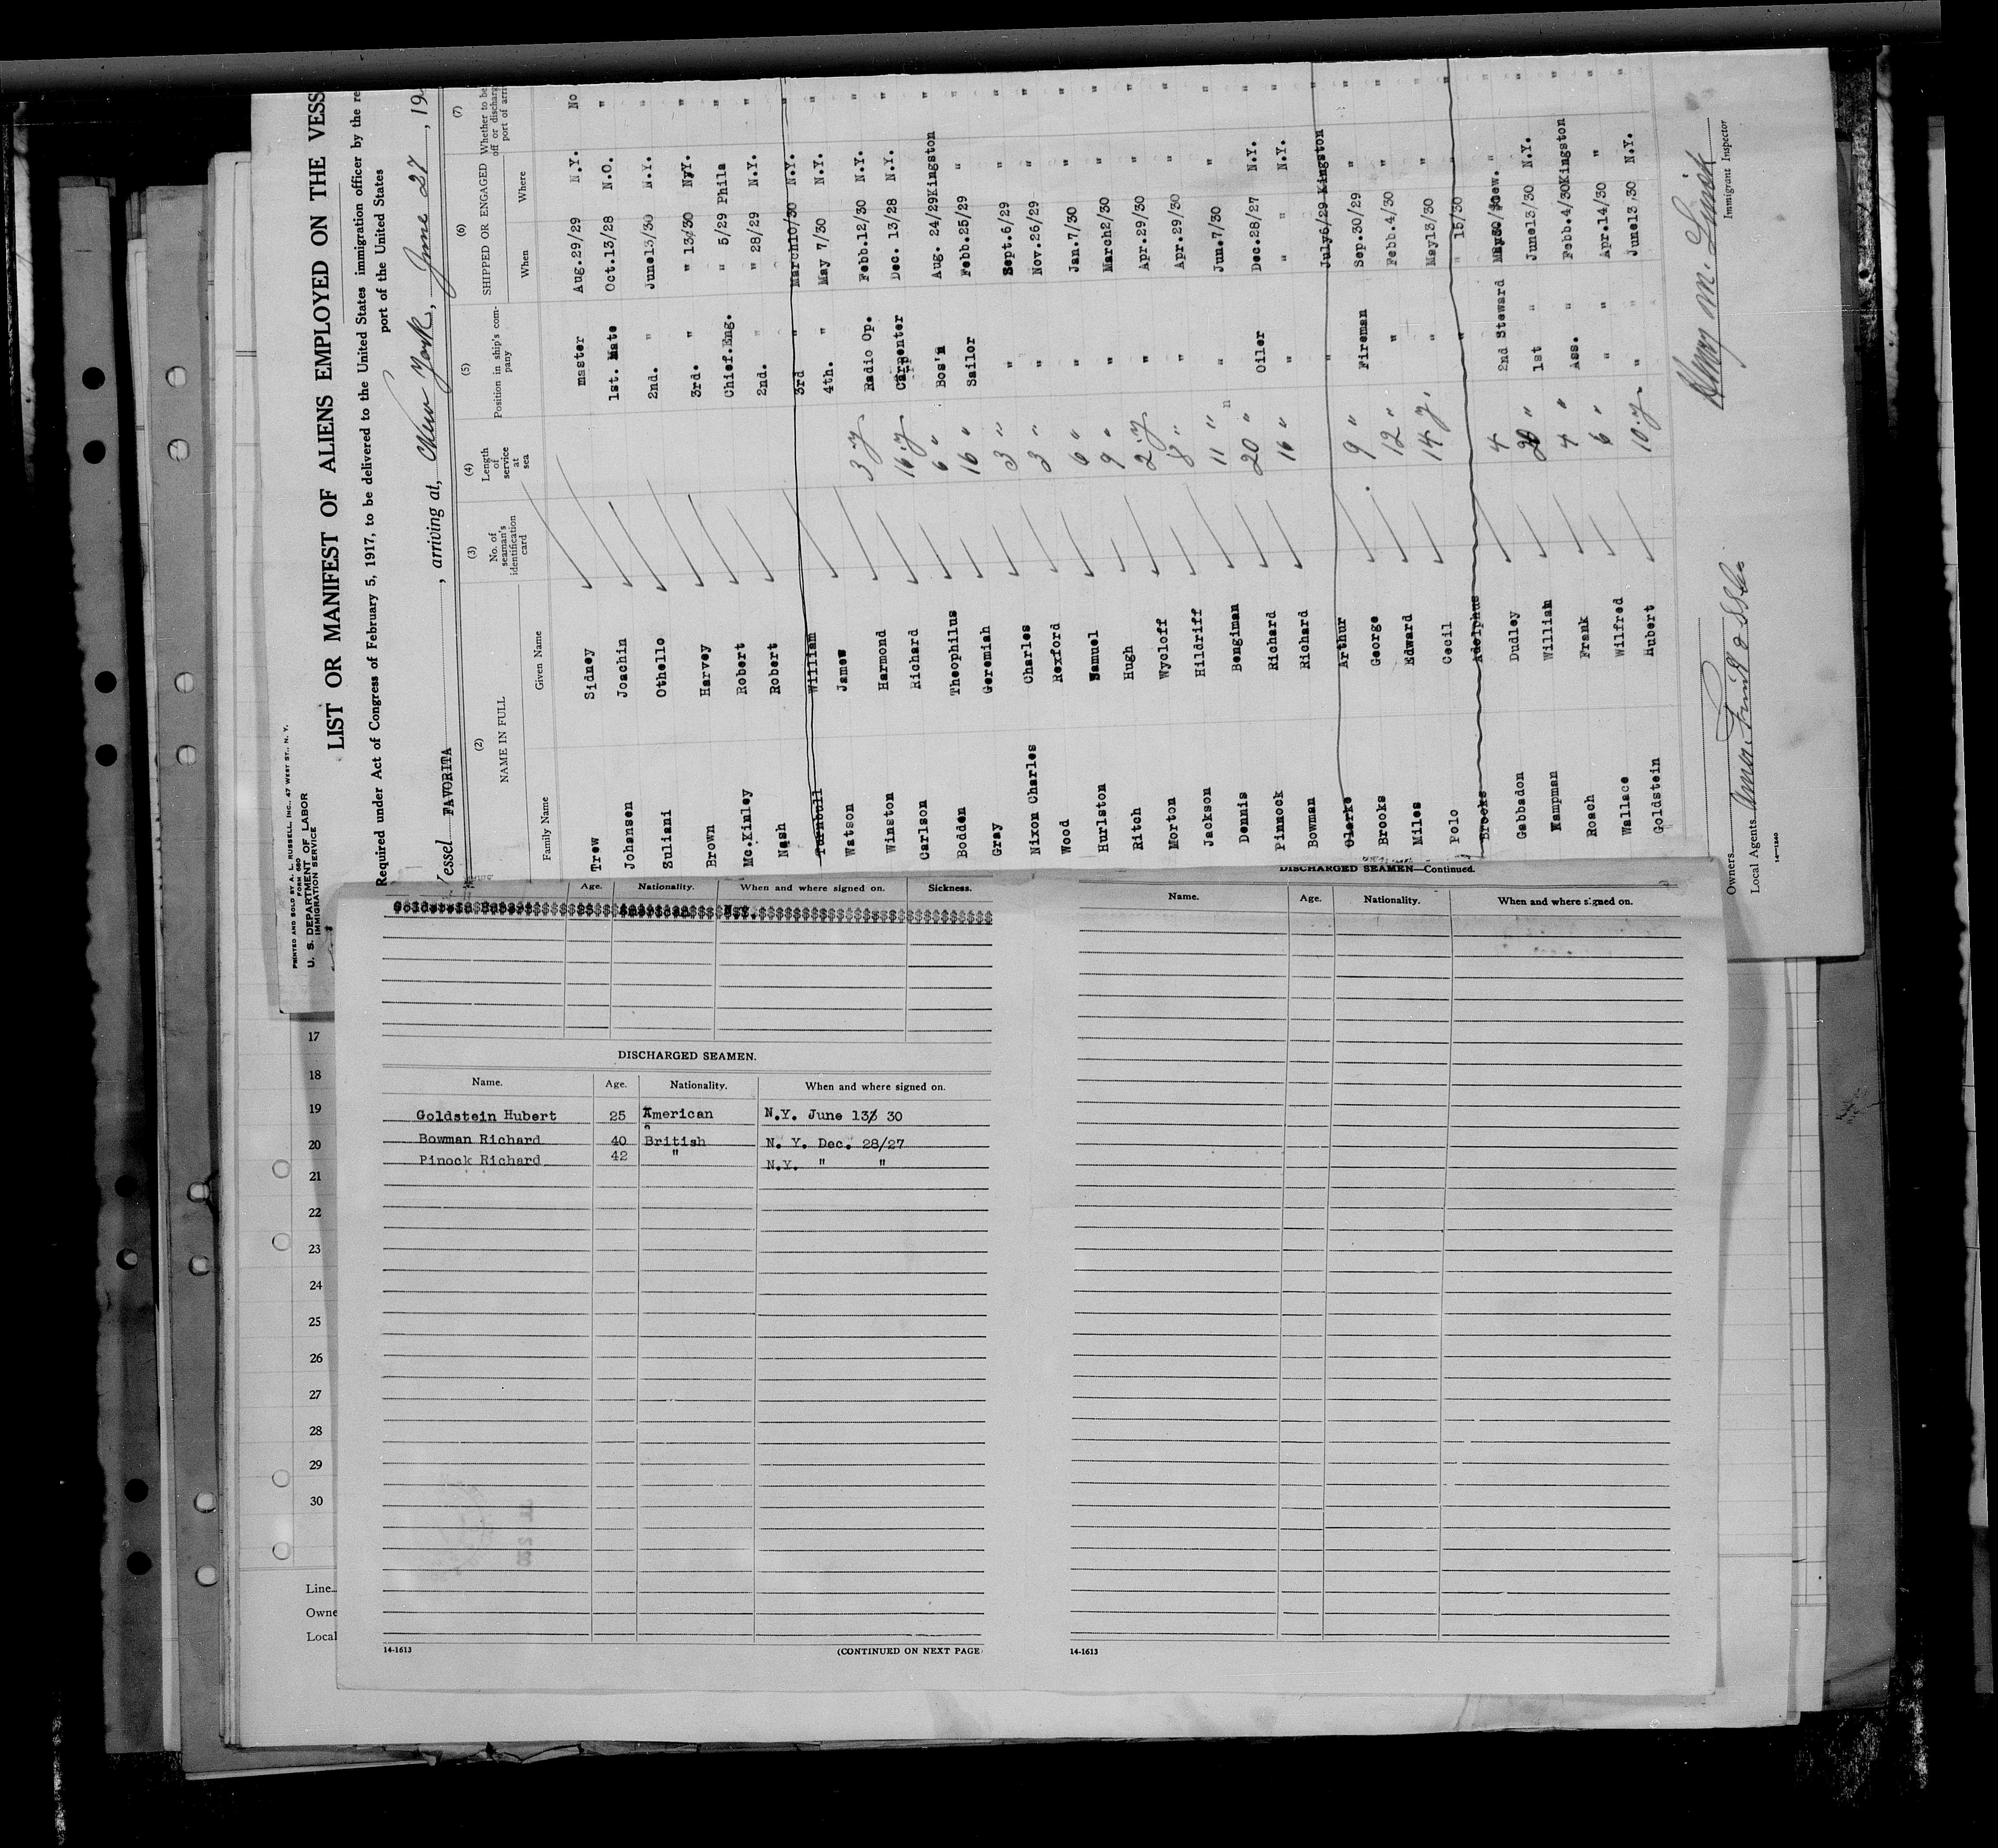 PRINTED AND SOLD BY A. L. RUSSELL, INC., 47 WEST ST., N. Y.
FORM 680
U. S. DEPARTMENT OF LABOR
IMMIGRATION SERVICE
LIST OR MANIFEST OF ALIENS EMPLOYED ON THE VESS
Required under Act of Congress of February 5, 1917, to be delivered to the United States immigration officer by the re
port of the United States
essel FAVORITA , arriving at, New York, June 27 , 19
(2) (3) (4) (5) (6) (7)
NAME IN FULL No. of seaman's identification card Length of service at sea Position in ship's company SHIPPED OR ENGAGED Whether to be
off or discharg
port of arri
Family Name Given Name When Where
Trew Sidney master Aug.29/29 N.Y. No
Johansen Joachin 1st. Mate Oct.13/28 N.O. "
Zuliani Othello 2nd. " June13/30 N.Y. "
Brown Harvey 3rd. " " 13/30 N.Y. "
Mc.Kinley Robert Chief.Eng. " 5/29 Phila "
Nash Robert 2nd. " " 28/29 N.Y. "
Turnbull William 3rd " March10/30 N.Y. "
Watson James 4th. " May 7/30 N.Y. "
Winston Harmond 3 y Radio Op. Febb.12/30 N.Y. "
Carlson Richard 16 y Carpenter Dec. 13/28 N.Y. "
Bodden Theophilus 6 " Bos'n Aug. 24/29Kingston "
Gray Geremiah 16 " Sailor Febb.25/29 " "
Nixon Charles Charles 3 " " Sept.6/29 " "
Wood Rexford 3 " " Nov.26/29 " "
Hurlston Samuel 6 " " Jan.7/30 " "
Ritch Hugh 9 " " March2/30 " "
Morton Wycloff 2 y " Apr.29/30 " "
Jackson Hildriff 8 " " Apr.29/30 " "
Dennis Bengiman 11 " " Jun.7/30 " "
Pinnock Richard 20 " Oiler Dec.28/27 N.Y. "
Bowman Richard 16 " " " " N.Y. "
Clerke Arthur " July6/29 Kingston "
Brooks George 9 " Fireman Sep.30/29 " "
Miles Edward 12 " " Febb.4/30 " "
Polo Cecil 14 y. " May13/30 " "
Brooks Adolphus " " 15/30 " "
Gabbadon Dudley 4 2nd Steward "
Kampman William 20 " 1st " June13/30 N.Y. "
Roach Frank 4 " Ass. " Febb.4/30Kingston "
Wallace Wilfred 6 " " " Apr.14/30 " "
Goldstein Hubert 10 y " " June13/30 N.Y. "
Owners
Local Agents
14—1240
Immigrant Inspector
Age. Nationality. When and where signed on. Sickness.
DISCHARGED SEAMEN.
Name. Age. Nationality. When and where signed on.
Goldstein Hubert 25 American N.Y. June 13 30
Bowman Richard 40 British N. Y. Dec. 28/27
Pinock Richard 42 " N.Y. " "
14-1613 (CONTINUED ON NEXT PAGE)
DISCHARGED SEAMEN—Continued.
Name. Age. Nationality. When and where signed on.
14-1613
17
18
19
20
21
22
23
24
25
26
27
28
29
30
Line
Owne
Local